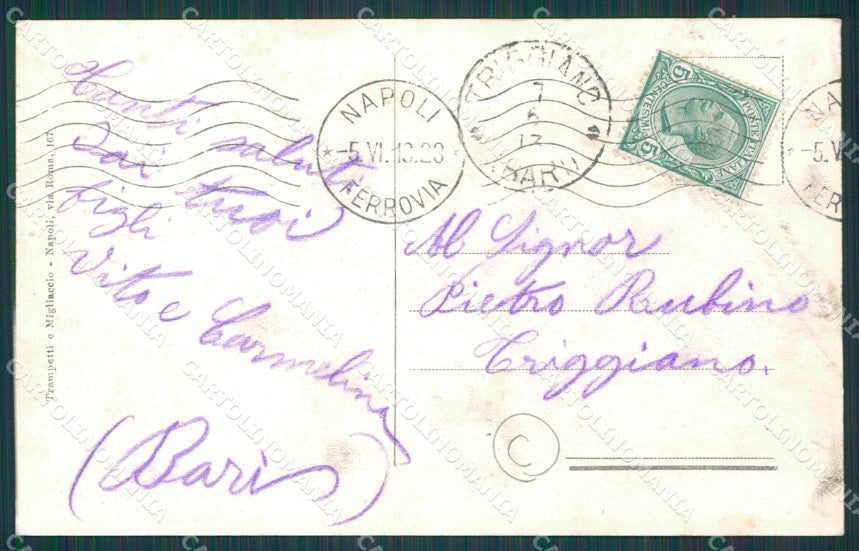 Tanti saluti
dai tuoi
figli
Vito e Carmelina
(Bari)
Al Signor
Pietro Rubino
Triggiano.
NAPOLI
*-5.VI.13.23
FERROVIA
TRIGGIANO
7
6
13
(BARI)
5
POSTE ITALIANE
CENTESIMI
5
NA
-5.V
FER
C
Trampetti e Migliaccio - Napoli, via Roma, 167
CARTOLINOMANIA